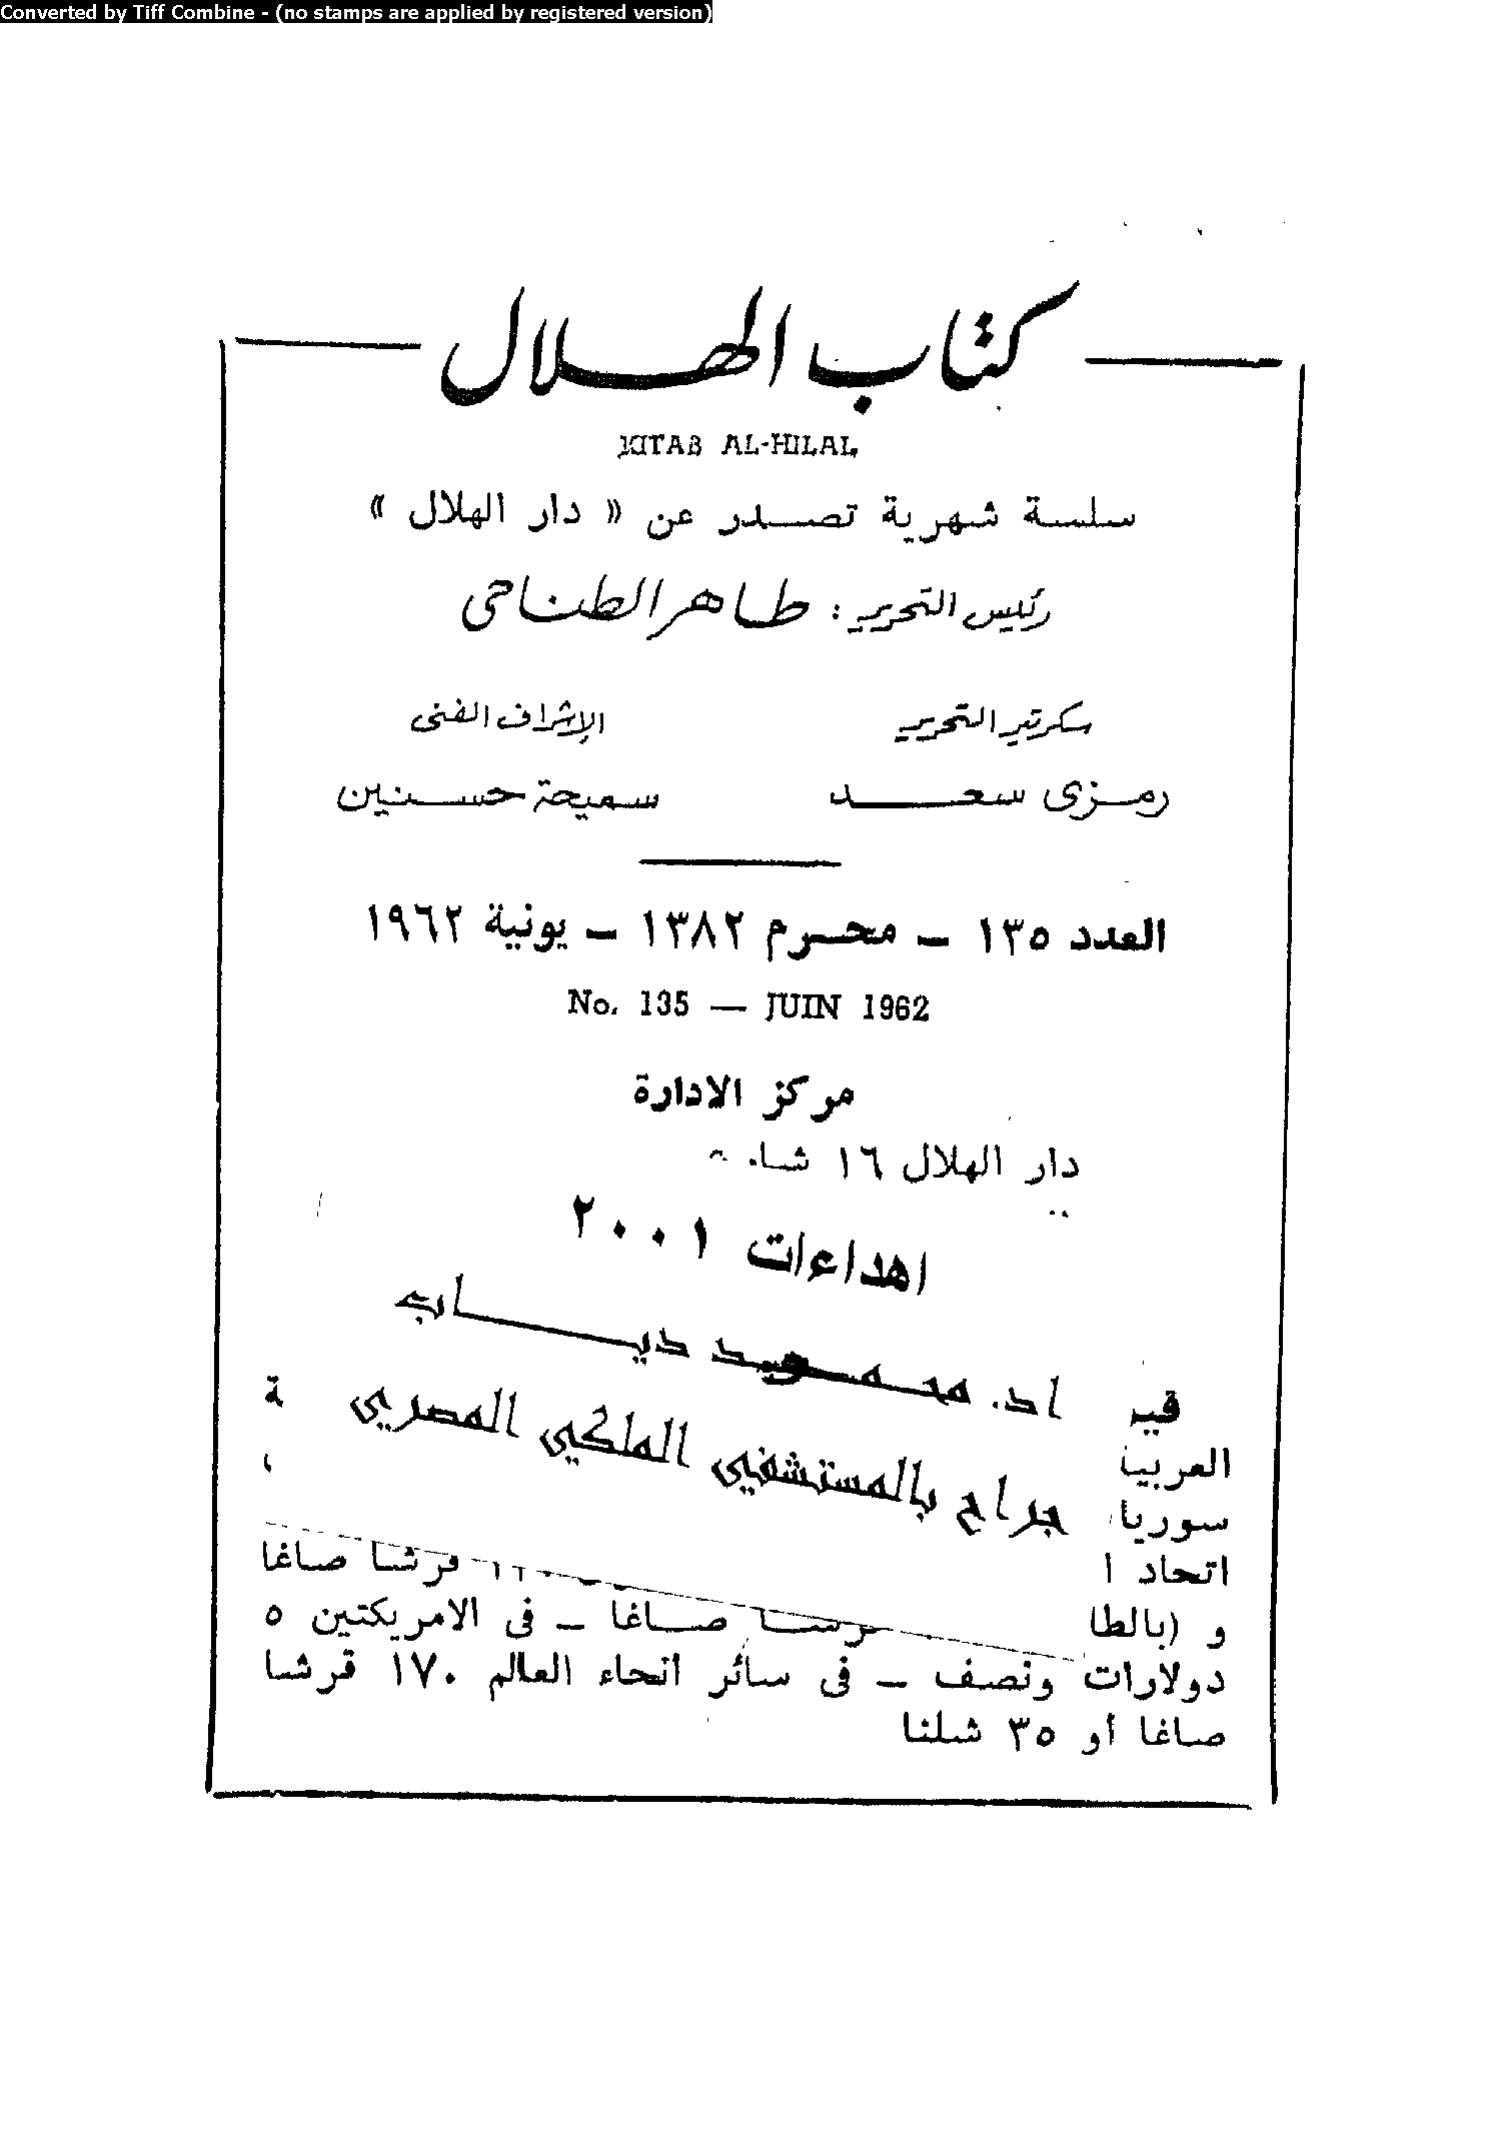 Converted by Tiff Combine - (no stamps are applied by registered version)
كتاب الهلال
KITAB AL-HILAL
سلسة شهرية تصدر عن « دار الهلال »
رئيس التحرير : طاهر الطناحى
سكرتير التحرير
رمزى سعد
الإشراف الفنى
سميحة حسنين
العدد ١٣٥ – محرم ١٣٨٢ – يونية ١٩٦٢
No. 135 — JUIN 1962
مركز الادارة
دار الهلال ١٦
اهداءات ٢٠٠١
اد. محمود دياب
جراح بالمستشفي الملكي المصري
سوريا
قرشا صاغا
صاغا – فى الامريكتين ٥
دولارات ونصف – فى سائر انحاء العالم ١٧٠ قرشا
صاغا أو ٣٥ شلنا